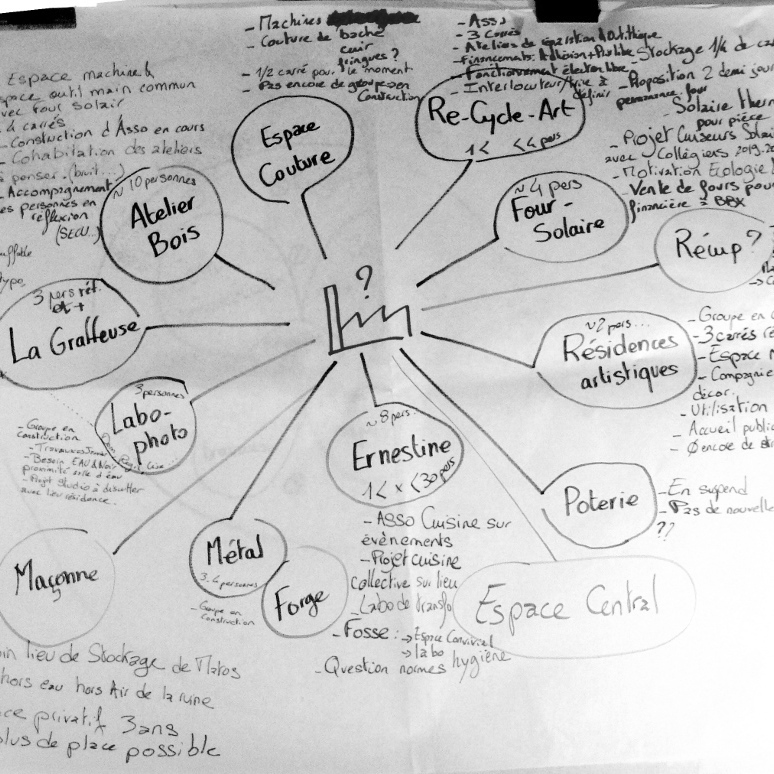 - Machines
- Couture de bâche
cuir
fringues ?
- 1/2 carré pour le moment
- Pas encore de groupe en
Construction
Espace
Couture
- Asso
- 3 carrés
- Ateliers de réparation
- Financements Adhésion + Prix libre
- Fonctionnement
- Interlocuteur/trice à
définir
Re-Cycle-Art
1< <4 pers
- Stockage 1/4 de
- Proposition 2 demi jour
permanence four
- Solaire
pour pièce
- Projet Cuiseurs Solai
avec Collégiens 2019.20
- Motivation Ecologie
- Vente de fours pou
financière à BBX
~4 pers
Four-
Solaire
Espace machine &
space outil main commun
avec four solair
4 carrés
- Construction d'Asso en cours
- Cohabitation des ateliers
à penser. (bruit...)
- Accompagnement
des personnes en
réflexion
(SECU..)
~10 personnes
Atelier
Bois
Récup ?
?
3 pers réf.
et +
La Graffeuse
type
~2 pers...
Résidences
artistiques
- Groupe en
- 3 carrés
- Espace
- Compagnie
décor.
- Utilisation
- Accueil public
- Ø encore de
3 personnes
Labo-
photo
- Groupe en
Construction
- Besoin EAU & Noir
proximité salle d'eau
- Projet Studio à discutter
avec lieu résidence.
~8 pers.
Ernestine
1< x <30 pers
- Asso Cuisine sur
évènements
- Projet cuisine
collective sur lieu
- Labo de transfo
- Fosse : → Espace Convivial
→ labo
- Question normes hygiène
Poterie
- En suspend
- Pas de nouvelle
??
Maçonne
Métal
3.4 personnes
- Groupe en
Construction
Forge
Espace Central
lieu de Stockage de Matos
hors eau hors Air de la ruine
ce privatif 3ans
plus de place possible